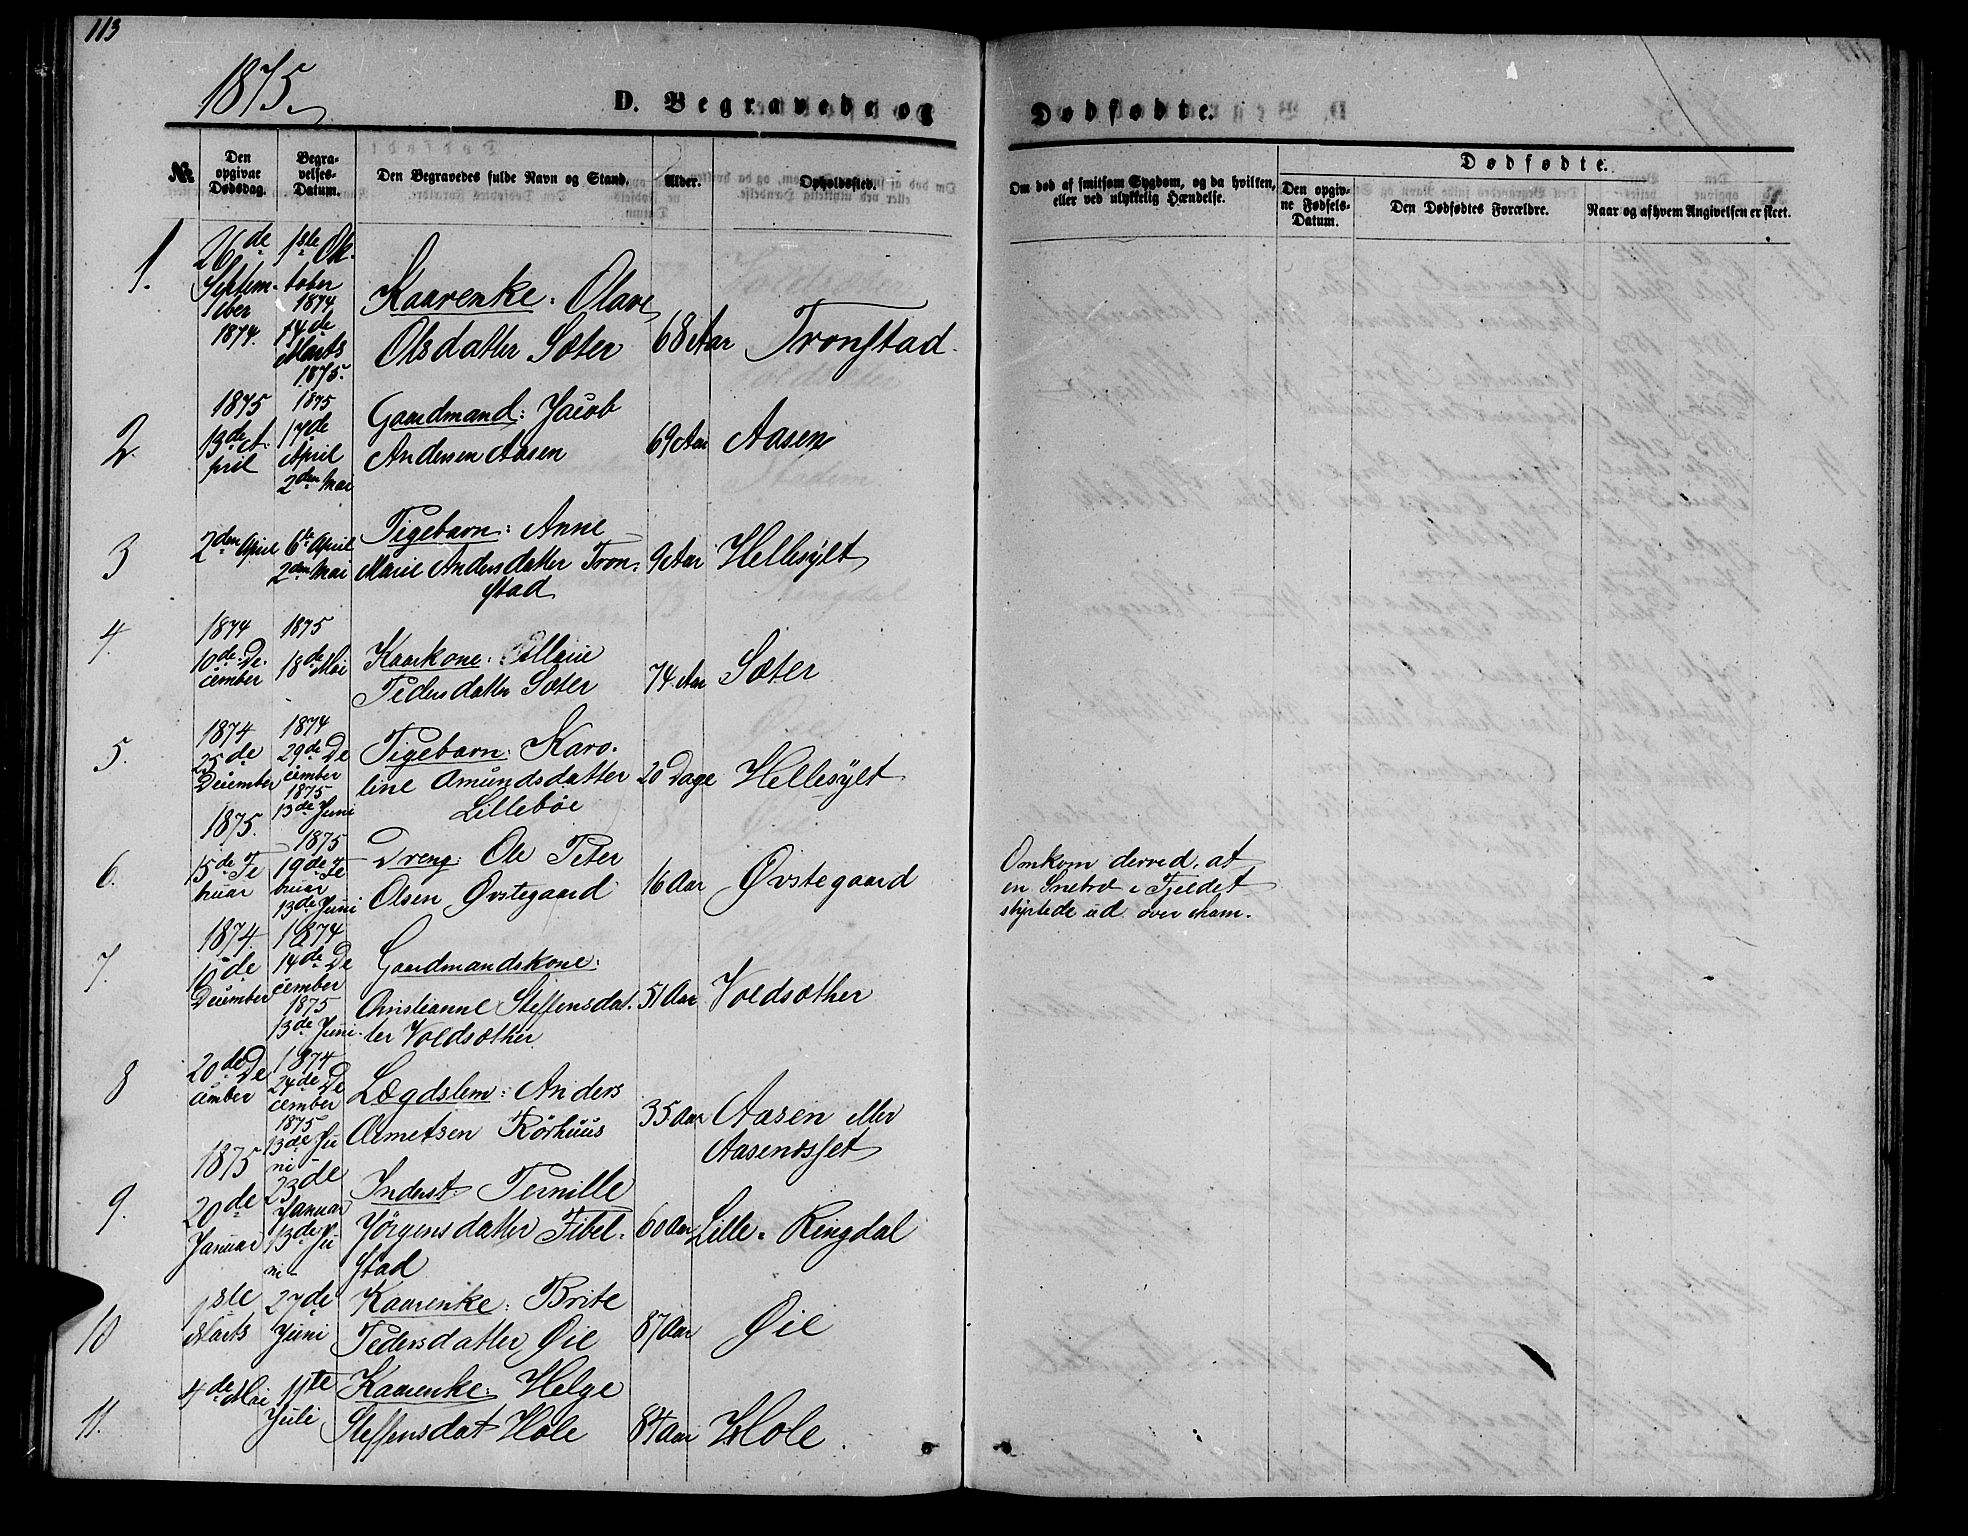 113
1875.
D. Begravede og Dødfødte.
№
Den opgivne Dødsdag.
Begravelses-Datum.
Den Begravedes fulde Navn og Stand.
Alder.
Opholdssted.
Om død af smitsom Sygdom, og da hvilken, eller ved ulykkelig Hændelse.
Dødfødte.
Den opgivne Fødsels-Datum.
Den Dødfødtes Forældre.
Naar og af hvem Angivelsen er skeet.
1.
26de September 1874.
1ste Oktober 1874
14de Marts 1875.
Kaarenke: Olave
Olsdatter Sæter
68 Aar
Tronstad.
2.
1875
13de April
1875
17de April
2den Mai
Gaardmand: Jacob
Andersen Aasen
69 Aar
Aasen
3
2den April
6te April
2den Mai
Pigebarn: Anne
Marie Andersdatter Tron-
stad
9 Aar
Hellesylt
4.
1874
10de December
1875
18de Mai
Kaarkone:
Pedersdatter Sæter
74 Aar
Sæter
5.
1874
25de December
1874
29de December
1875
13de Juni
Pigebarn: Karo-
line Amundsdatter
Lillebøe
20 Dage
Hellesylt
6.
1875.
15de Februar
1875
19de Februar
13de Juni
Dreng: Ole Peter
Olsen Øvstegaard
16 Aar
Øvstegaard
Omkom derved, at
en Snebræ i Fjeldet
styrtede ud over ham.
7.
1874.
10de December
1874
14de December
1875
13de Juni
Gaardmandskone:
Christianne Steffensdat-
ter Voldsæther
51 Aar
Voldsæther
8
20de December
1874
24de December
1875
13de Juni
Lægdslem: Anders
Rørhuus
35 Aar
Aasen eller
Aasendsjet
9.
1875
20de Januar
23de Januar
13de Juni
Inderst: Pernille
Jørgensdatter Fibel-
stad
60 Aar
Lille-Ringdal
10
1ste Marts
27de Juni
Kaarenke: Brite
Pedersdatter Øie
87 Aar
Øie
11.
4de Mai
11te Juli
Kaarenke: Helge
Steffensdat Hole
84 Aar
Hole.